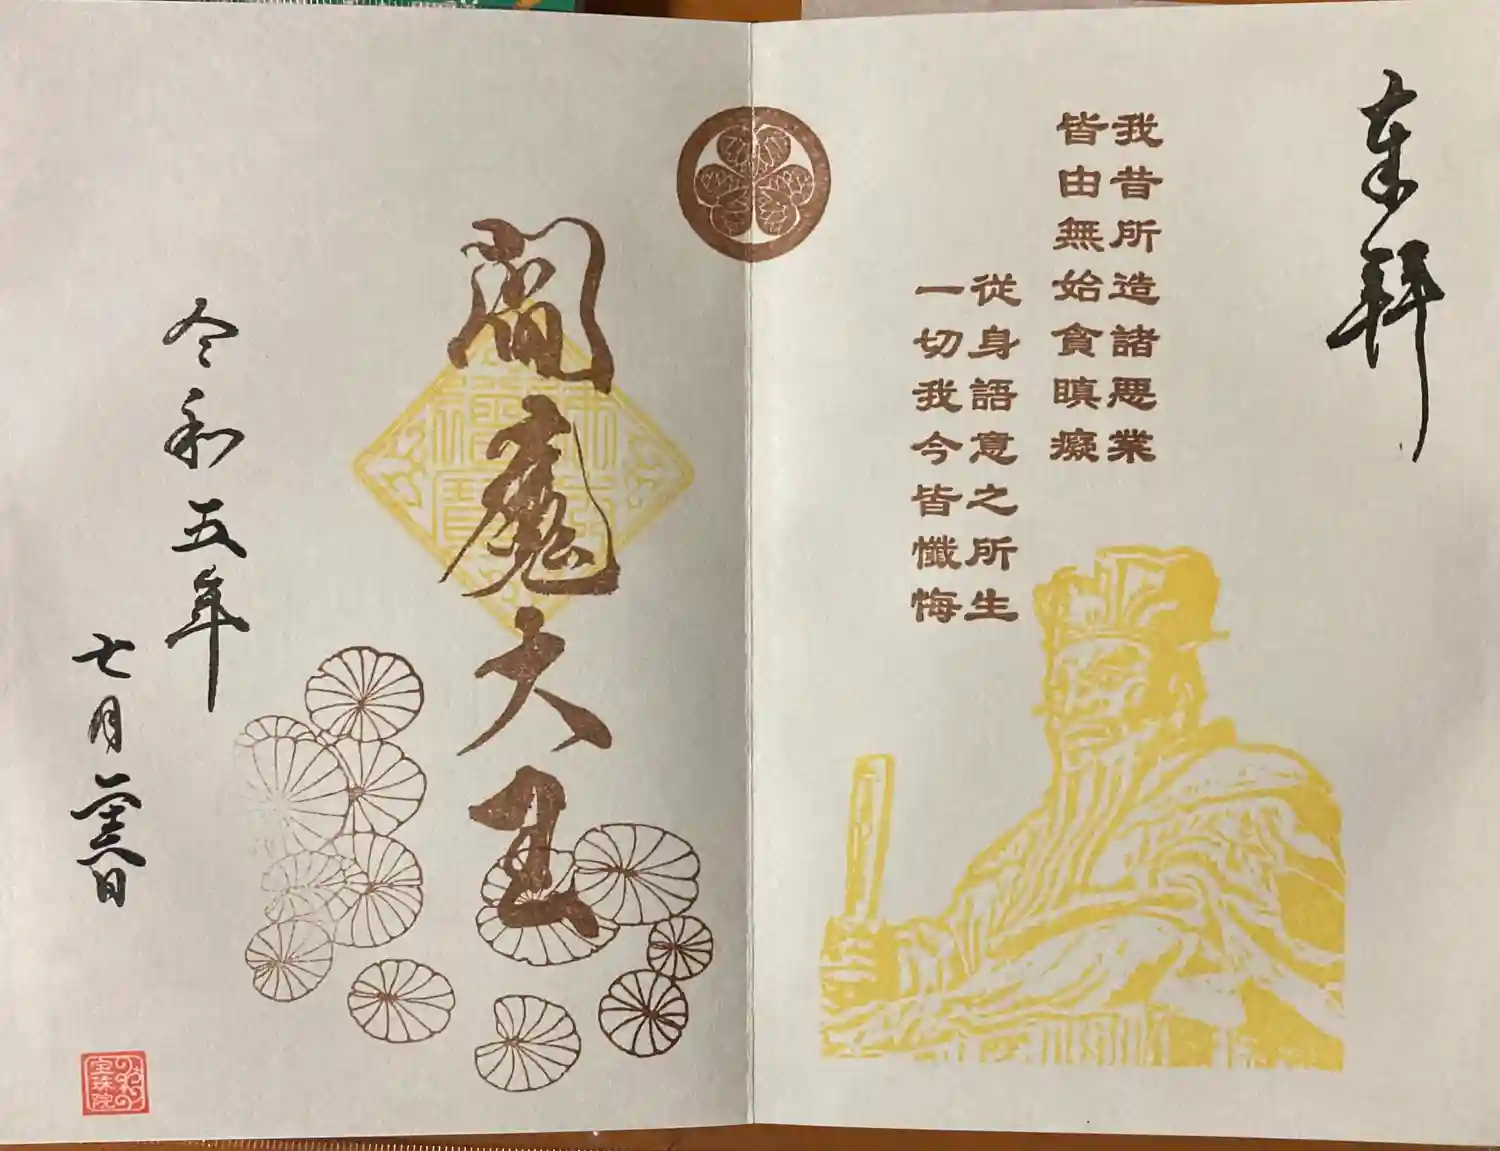 奉拝
我昔所造諸悪業
皆由無始貪瞋癡
從身語意之所生
一切我今皆懺悔
閻魔大王
令和五年
七月 日
宝珠院